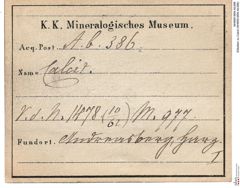 K. K. Mineralogisches Museum.
Acq. Post. A. b. 386.
Name Calcit.
V. d. N. 1478 (10/61) M. 977.
Fundort. Andreasberg Harz.
I